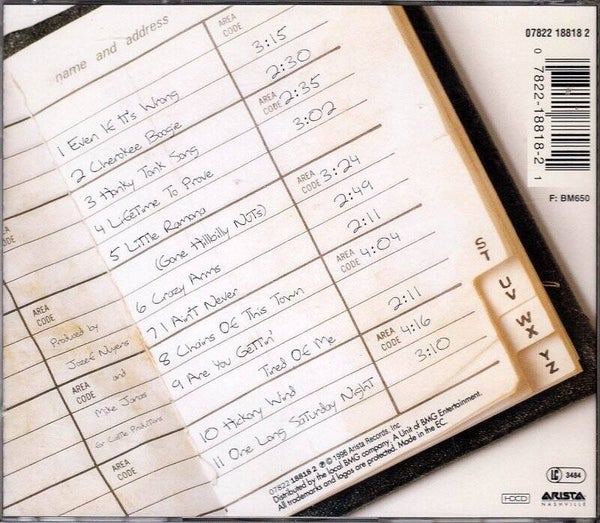 name and address
AREA CODE
1 Even If It's Wrong 3:15
2 Cherokee Boogie 2:30
3 Honky Tonk Song AREA CODE 2:35
4 Lifetime To Prove 3:02
5 Little Ramona
(Gone Hillbilly Nuts) AREA CODE 3:24
6 Crazy Arms 2:49
7 I Ain't Never 2:11
8 Chains Of This Town AREA CODE 4:04
9 Are You Gettin'
Tired Of Me 2:11
10 Hickory Wind AREA CODE 4:16
11 One Long Saturday Night 3:10
AREA CODE
Produced by
Jozef Nuyens
AREA CODE
and
Mike Janas
for Castle Productions
AREA CODE
07822 18818 2 ℗ © 1996 Arista Records, Inc.
Distributed by the local BMG company. A Unit of BMG Entertainment.
All trademarks and logos are protected. Made in the EC.
ST
UV
WX
YZ
07822 18818 2
0 7822-18818-2 1
F: BM650
LC 3484
HDCD
ARISTA
NASHVILLE